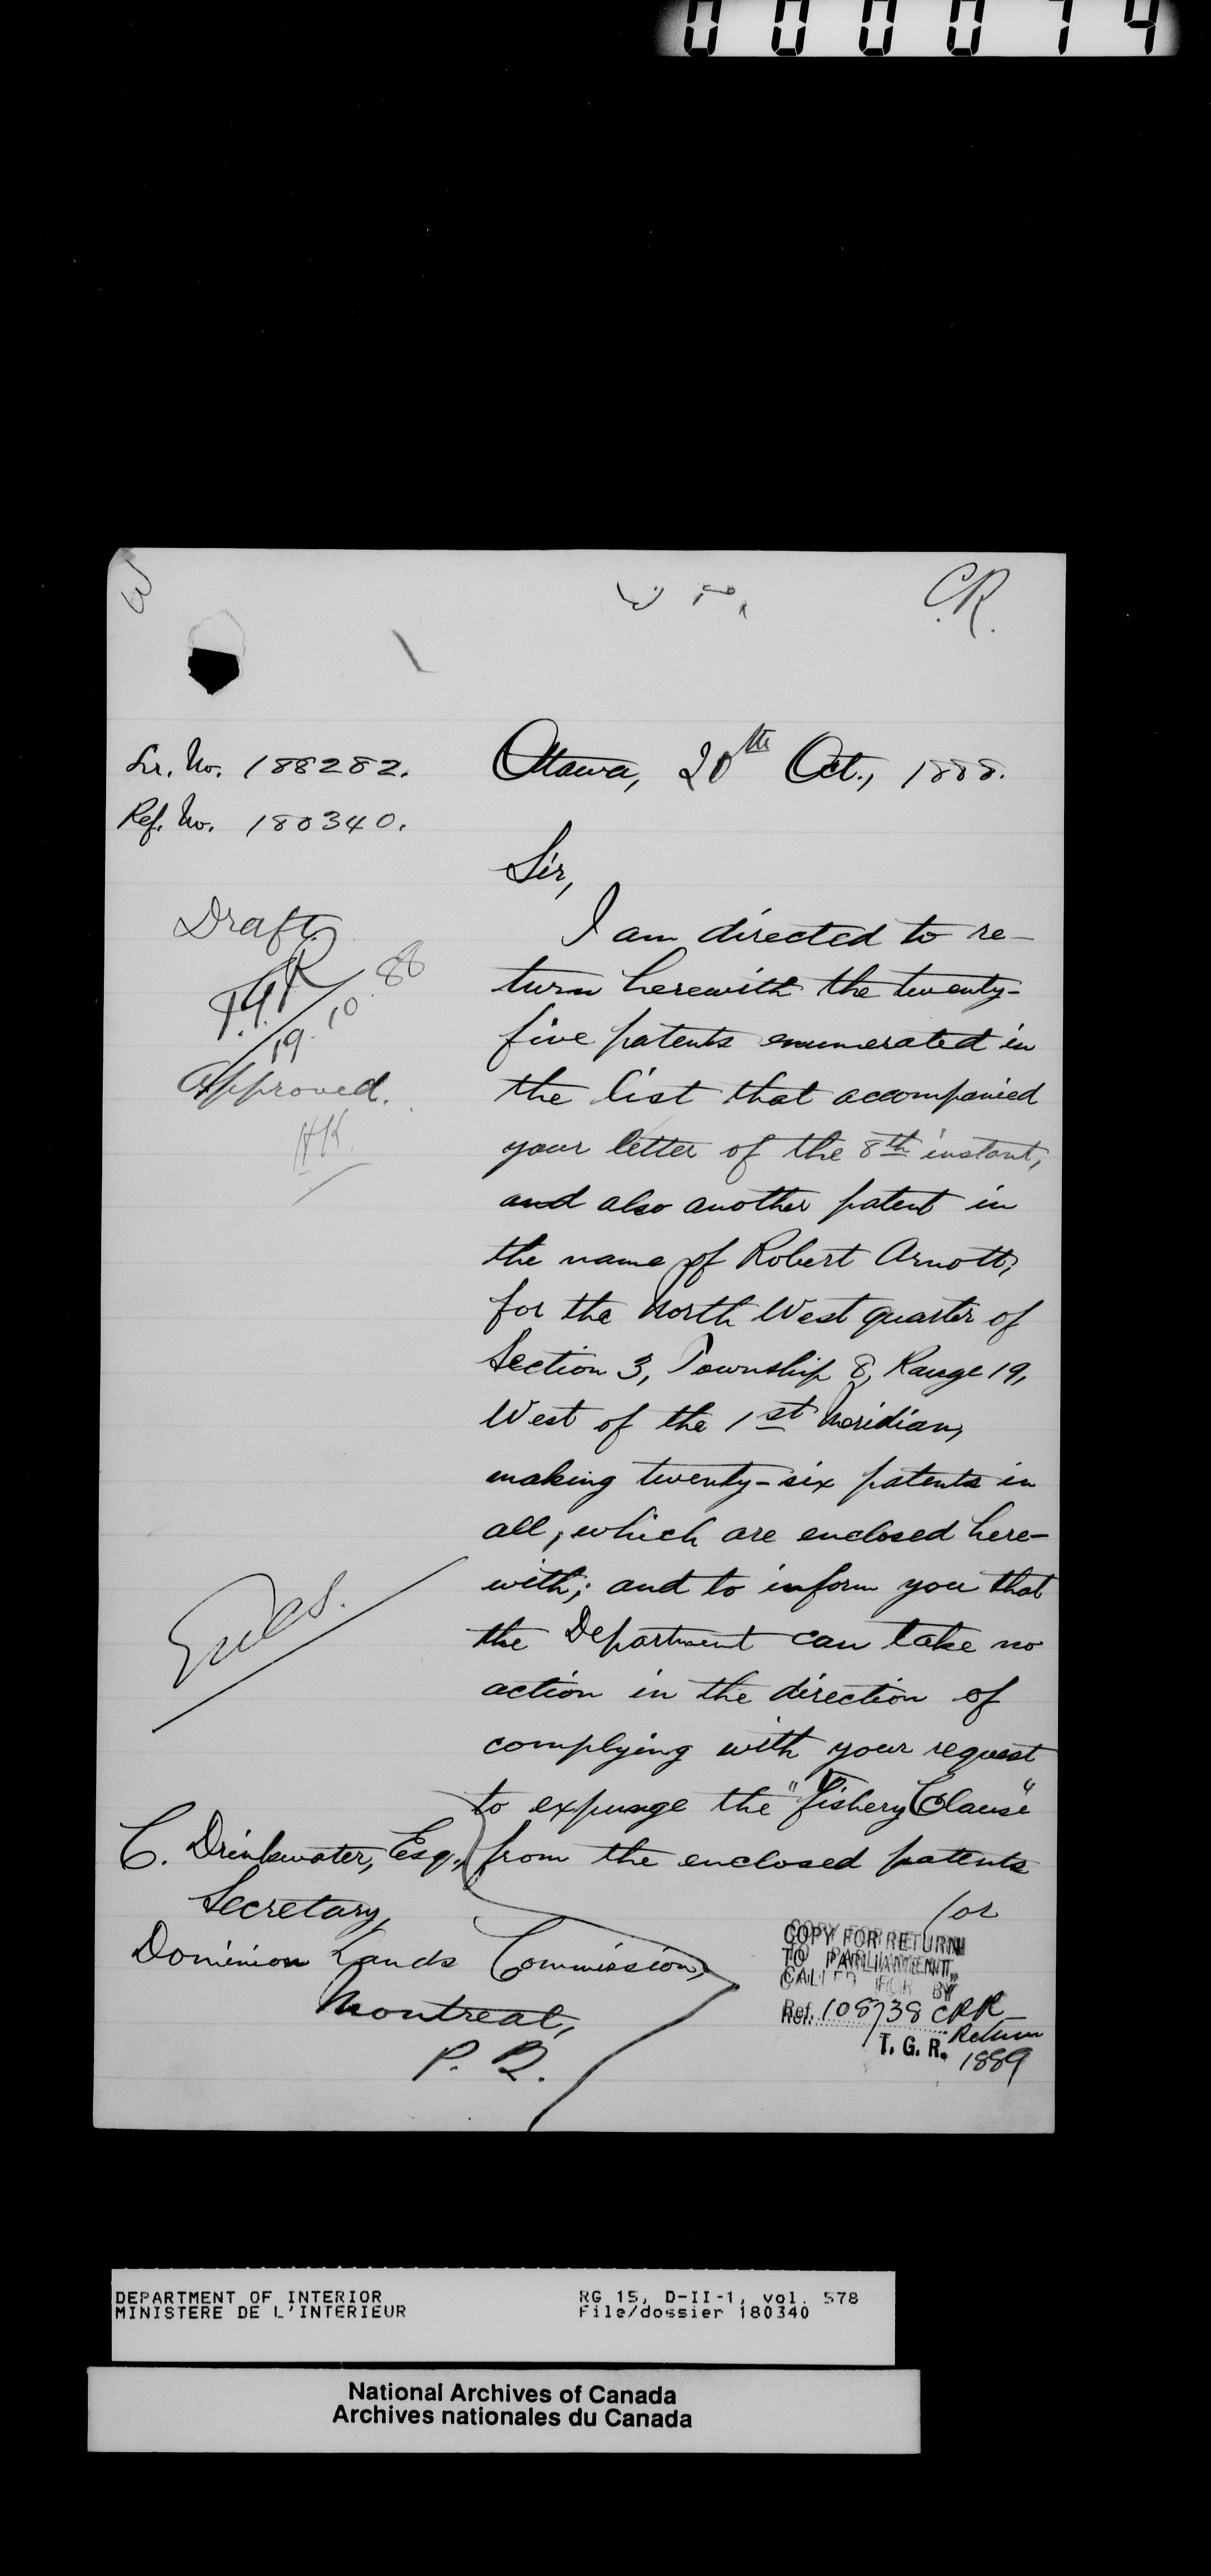 000074
C.R.
Lr. No. 188282.
Ref. No. 180340.
Ottawa, 20th Oct., 1888.
Sir,
Draft.
T.G.R
19.10.88
Approved.
HK
I am directed to re-
turn herewith the twenty-
five patents enumerated in
the list that accompanied
your letter of the 8th instant,
and also another patent in
the name of Robert Arnott,
for the North West quarter of
Section 3, Township 8, Range 19,
West of the 1st Meridian,
making twenty-six patents in
all, which are enclosed here-
with; and to inform you that
the Department can take no
action in the direction of
complying with your request
to expunge the "Fishery Clause"
from the enclosed patents
/or
C. Drinkwater, Esq.,
Secretary,
Dominion Lands Commission,
Montreal,
P. Q.
COPY FOR RETURN
TO PARLIAMENT,
CALLED FOR BY
Ref. 108738 CRR
T. G. R. Return
1889
DEPARTMENT OF INTERIOR
MINISTERE DE L'INTERIEUR
RG 15, D-II-1, vol. 578
File/dossier 180340
National Archives of Canada
Archives nationales du Canada